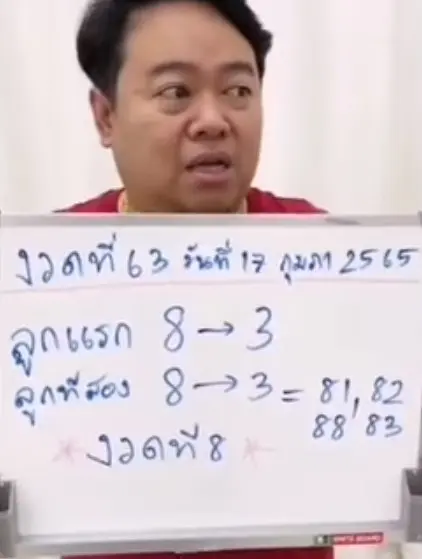 งวดที่ 63 วันที่ 17 กุมภา 2565
ลูกแรก 8 → 3
ลูกที่สอง 8 → 3 = 81, 82
88, 83
* งวดที่ 8 *
WHITE BOARD